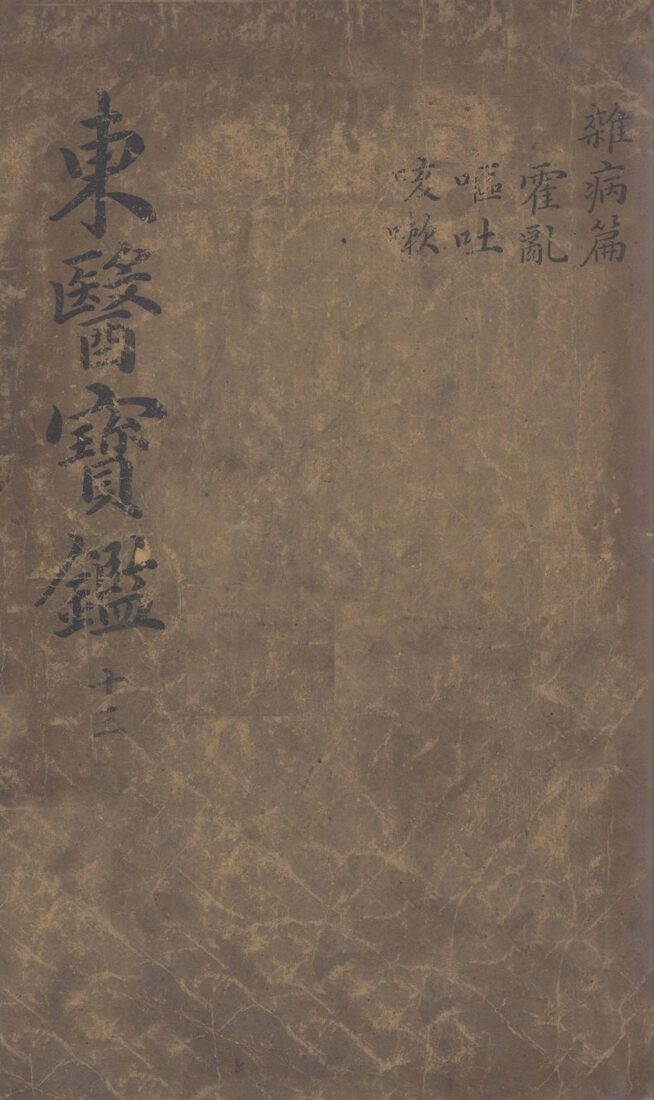 雜病篇
霍亂
嘔吐
咳嗽
東醫寶鑑 十三